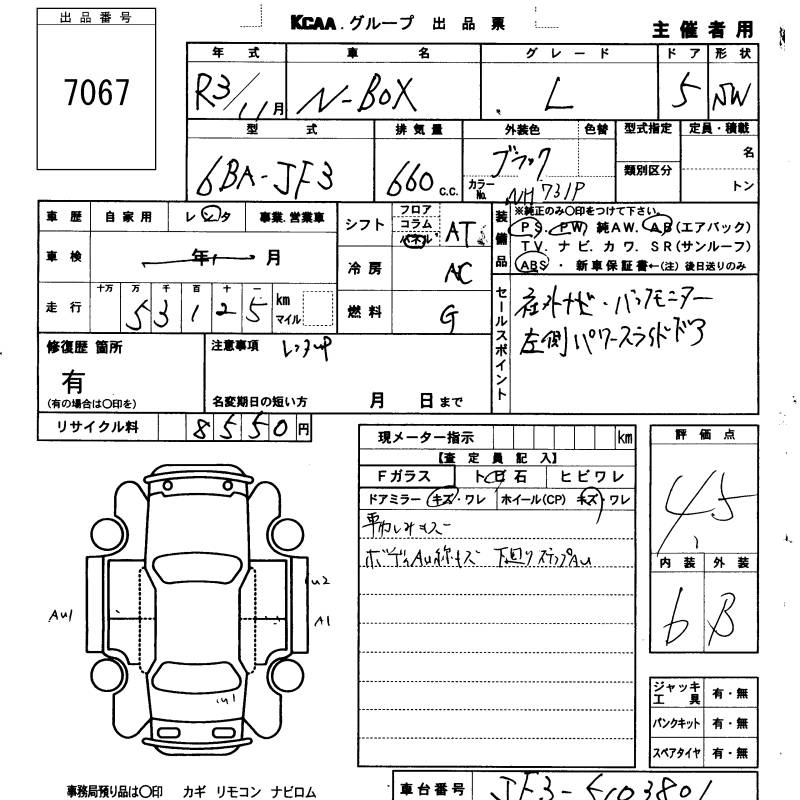 KCAA.グループ 出品票
主催者用
出品番号
7067
年式 車名 グレード ドア 形状
R3/11月 N-BOX L 5 5W
型式 排気量 外装色 色替 型式指定 定員・積載
6BA-JF3 660c.c. ブラック 類別区分 名
カラーNo. NH731P トン
車歴 自家用 レンタ 事業.営業車
シフト フロア コラム パネル AT
装備品
※純正のみ○印をつけて下さい。
PS. PW 純AW. AB(エアバック)
TV. ナビ. カワ. SR(サンルーフ)
ABS・新車保証書←(注)後日送りのみ
車検 年 月
冷房 AC
走行 十万 万 千 百 十 一
53125 km マイル
燃料 G
セールスポイント
社外ナビ・バックモニター
左側パワースライドドア
修復歴 箇所
有
(有の場合は○印を)
注意事項 レンタUP
名変期日の短い方 月 日まで
リサイクル料 8550円
現メーター指示 km
【査定員記入】
Fガラス ト ビ 石 ヒビワレ
ドアミラー キズ・ワレ ホイール(CP) キズ・ワレ
ボディAu線キズ 下廻りステップAu
評価点
4.5
内装 外装
6 B
Au1
u2
A1
u1
ジャッキ工具 有・無
パンクキット 有・無
スペアタイヤ 有・無
事務局預り品は○印 カギ リモコン ナビロム
車台番号 JF3-5103801